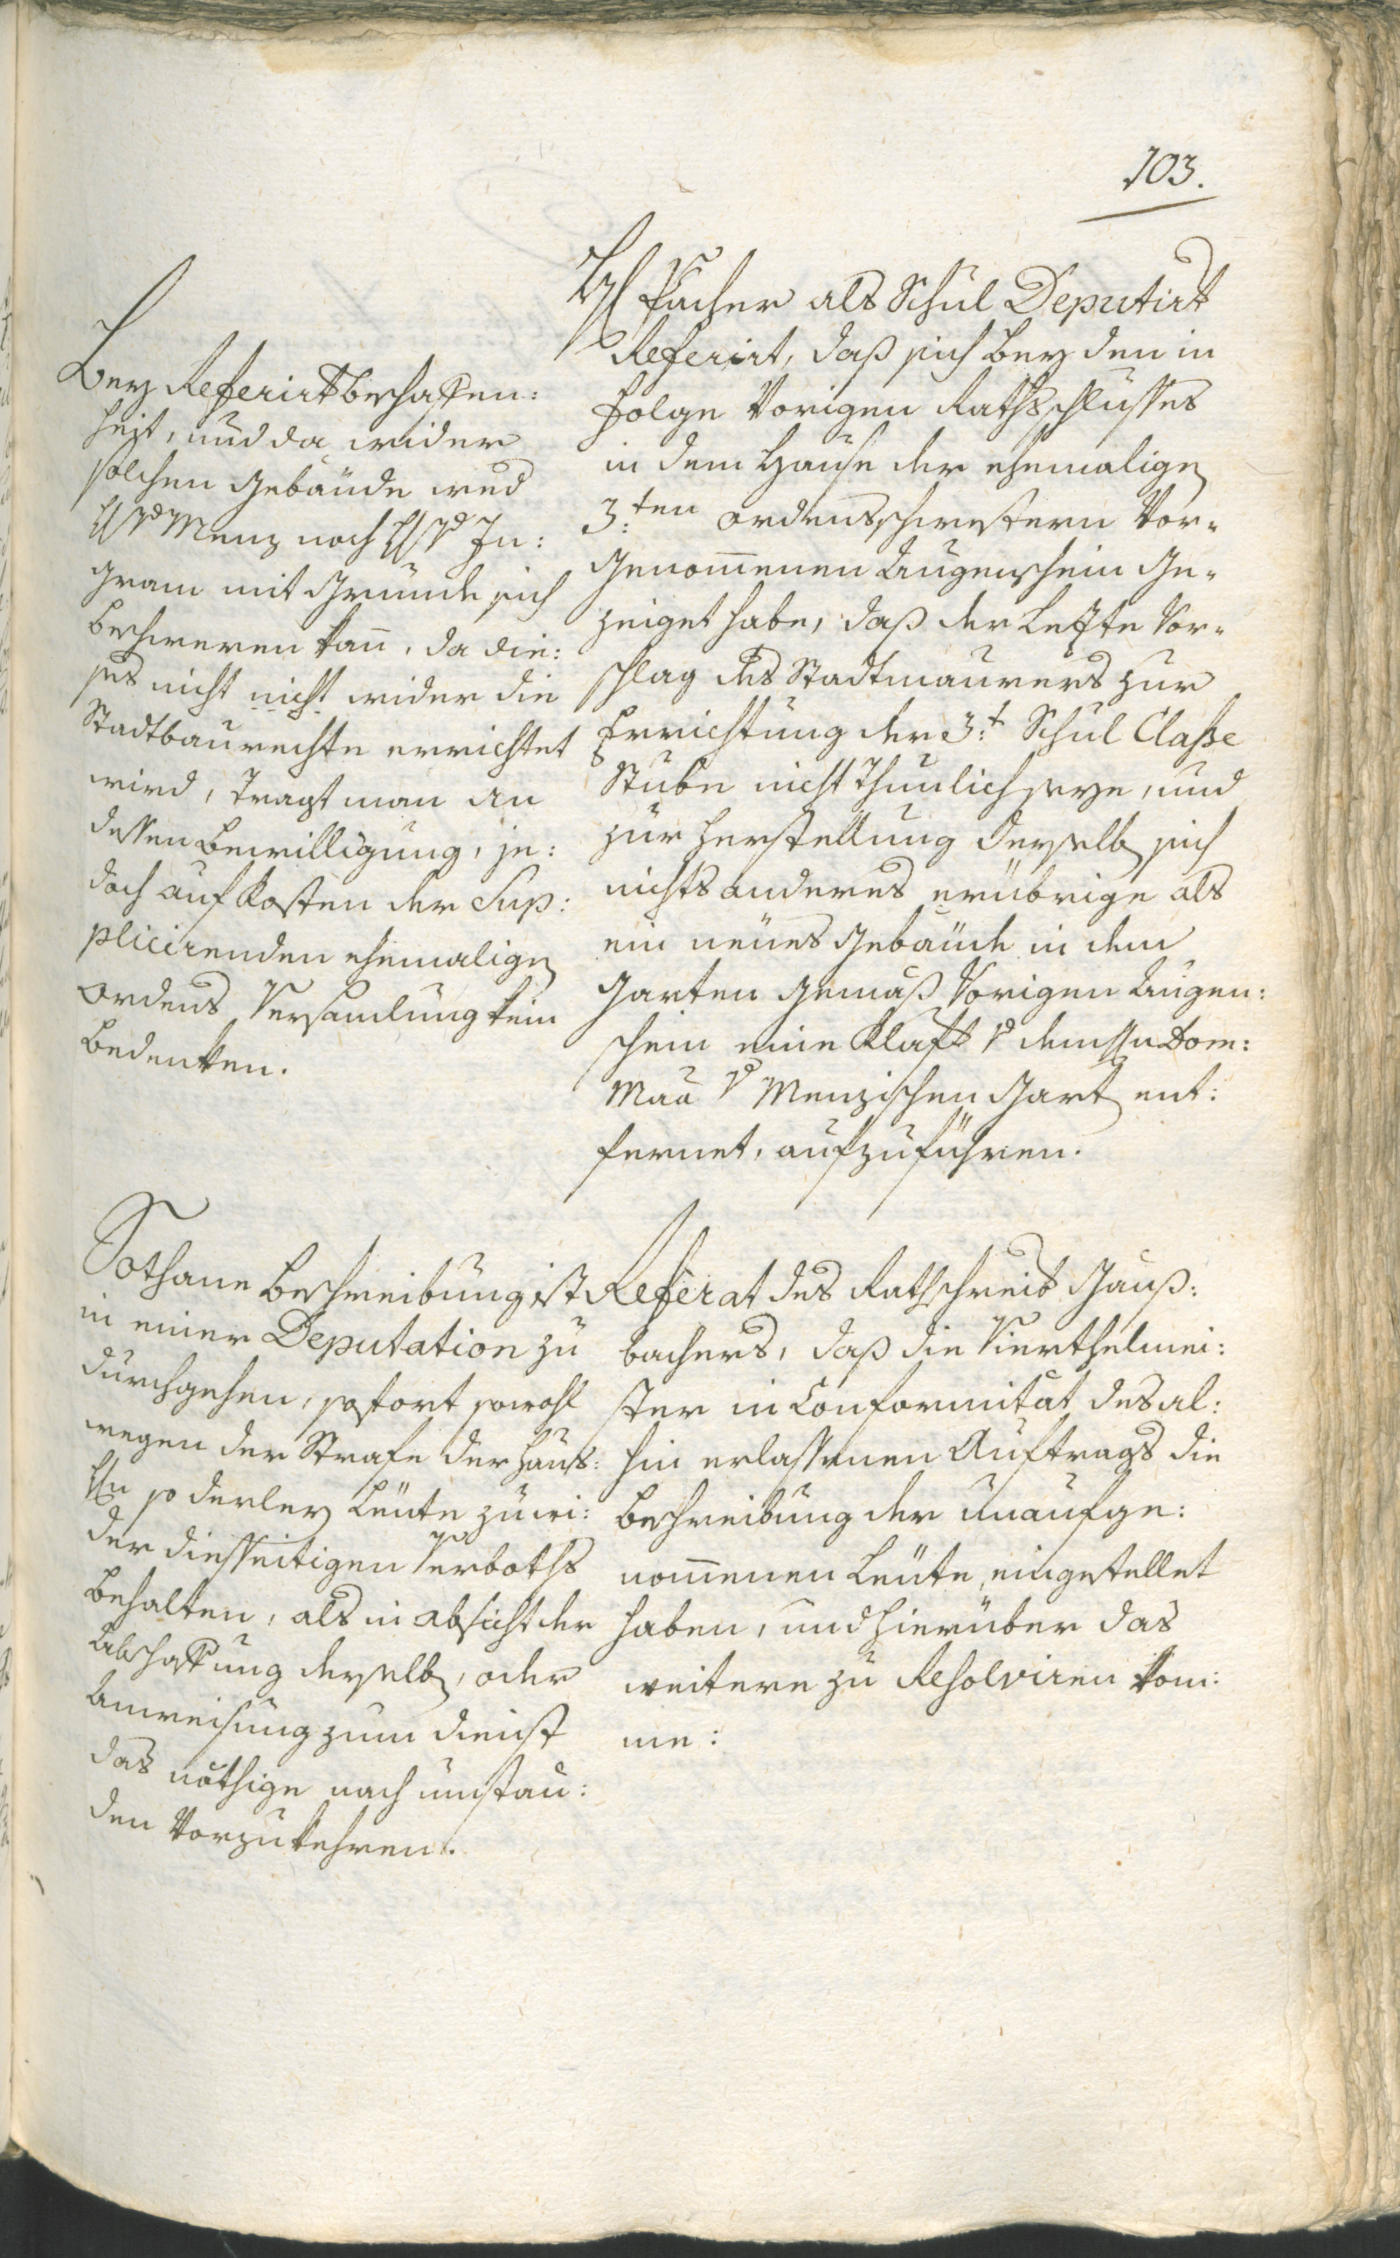 103.
H Pacher als Schul Deputirt
Referirt, daß sich bey den in
Folge Vorigen Rathsschlusses
in dem Hause der ehemalign
3.ten Ordensschwestern Vor-
genom̅enen Augenschein ge-
zeiget habe, daß der Letzte Vor-
schlag des Stadtmaurers zur
Errichtung der 3.t Schul Classe
Stube nicht thunlich seye, und
zur Herstellung derselbn sich
nichts anderes erübrige als
ein neües Gebäude in dem
Garten gemäß Vorigen Augen:
schein eine Klaft v
v Menzischen Gartn ent:
fernet, aufzuführen.
Bey Referirt beschaffen:
heit, und da wider
solchen Gebäude wed
H v Menz noch H v In:
gram mit Grunde sich
beschweren kan̅, da die:
ses nicht nicht wider die
Stadtbaurechte errichtet
wird, tragt man an
dessen Bewilligung, je:
doch auf Kosten der Sup:
plicirenden ehemalign
Ordens Versam̅lung kein
Bedenken.
Referat des Rathschreib Gauß:
bachers, daß die Vierthelmei:
ster in Conformität des al:
hin erlassenen Auftrags die
Beschreibung der unaufge:
nom̅enen Leüte eingestellet
haben, und hierüber das
weitere zu Resolviren kom:
me:
Sothane Beschreibung ist
in einer Deputation zu
durchgehen, sofort sowohl
wegen der Strafe der Haus:
Hn so derley Leüte zuwi:
der diesseitigen Verboths
behalten, als in absicht der
Abschaffung derselbn, oder
Anweisung zum Dienst
das nöthige nach umstän:
den Vorzukehren.